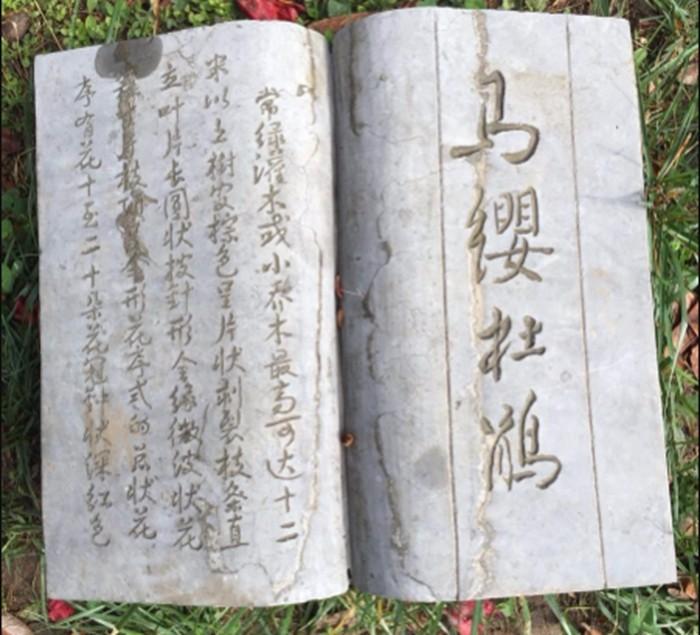 马缨杜鹃
常绿灌木或小乔木最高可达十二
米以上樹皮棕色呈片状剥裂枝条直
立叶片长圆状披針形全缘微波状花
枝顶伞形花序式的总状花
序有花十至二十朵花冠钟状深红色